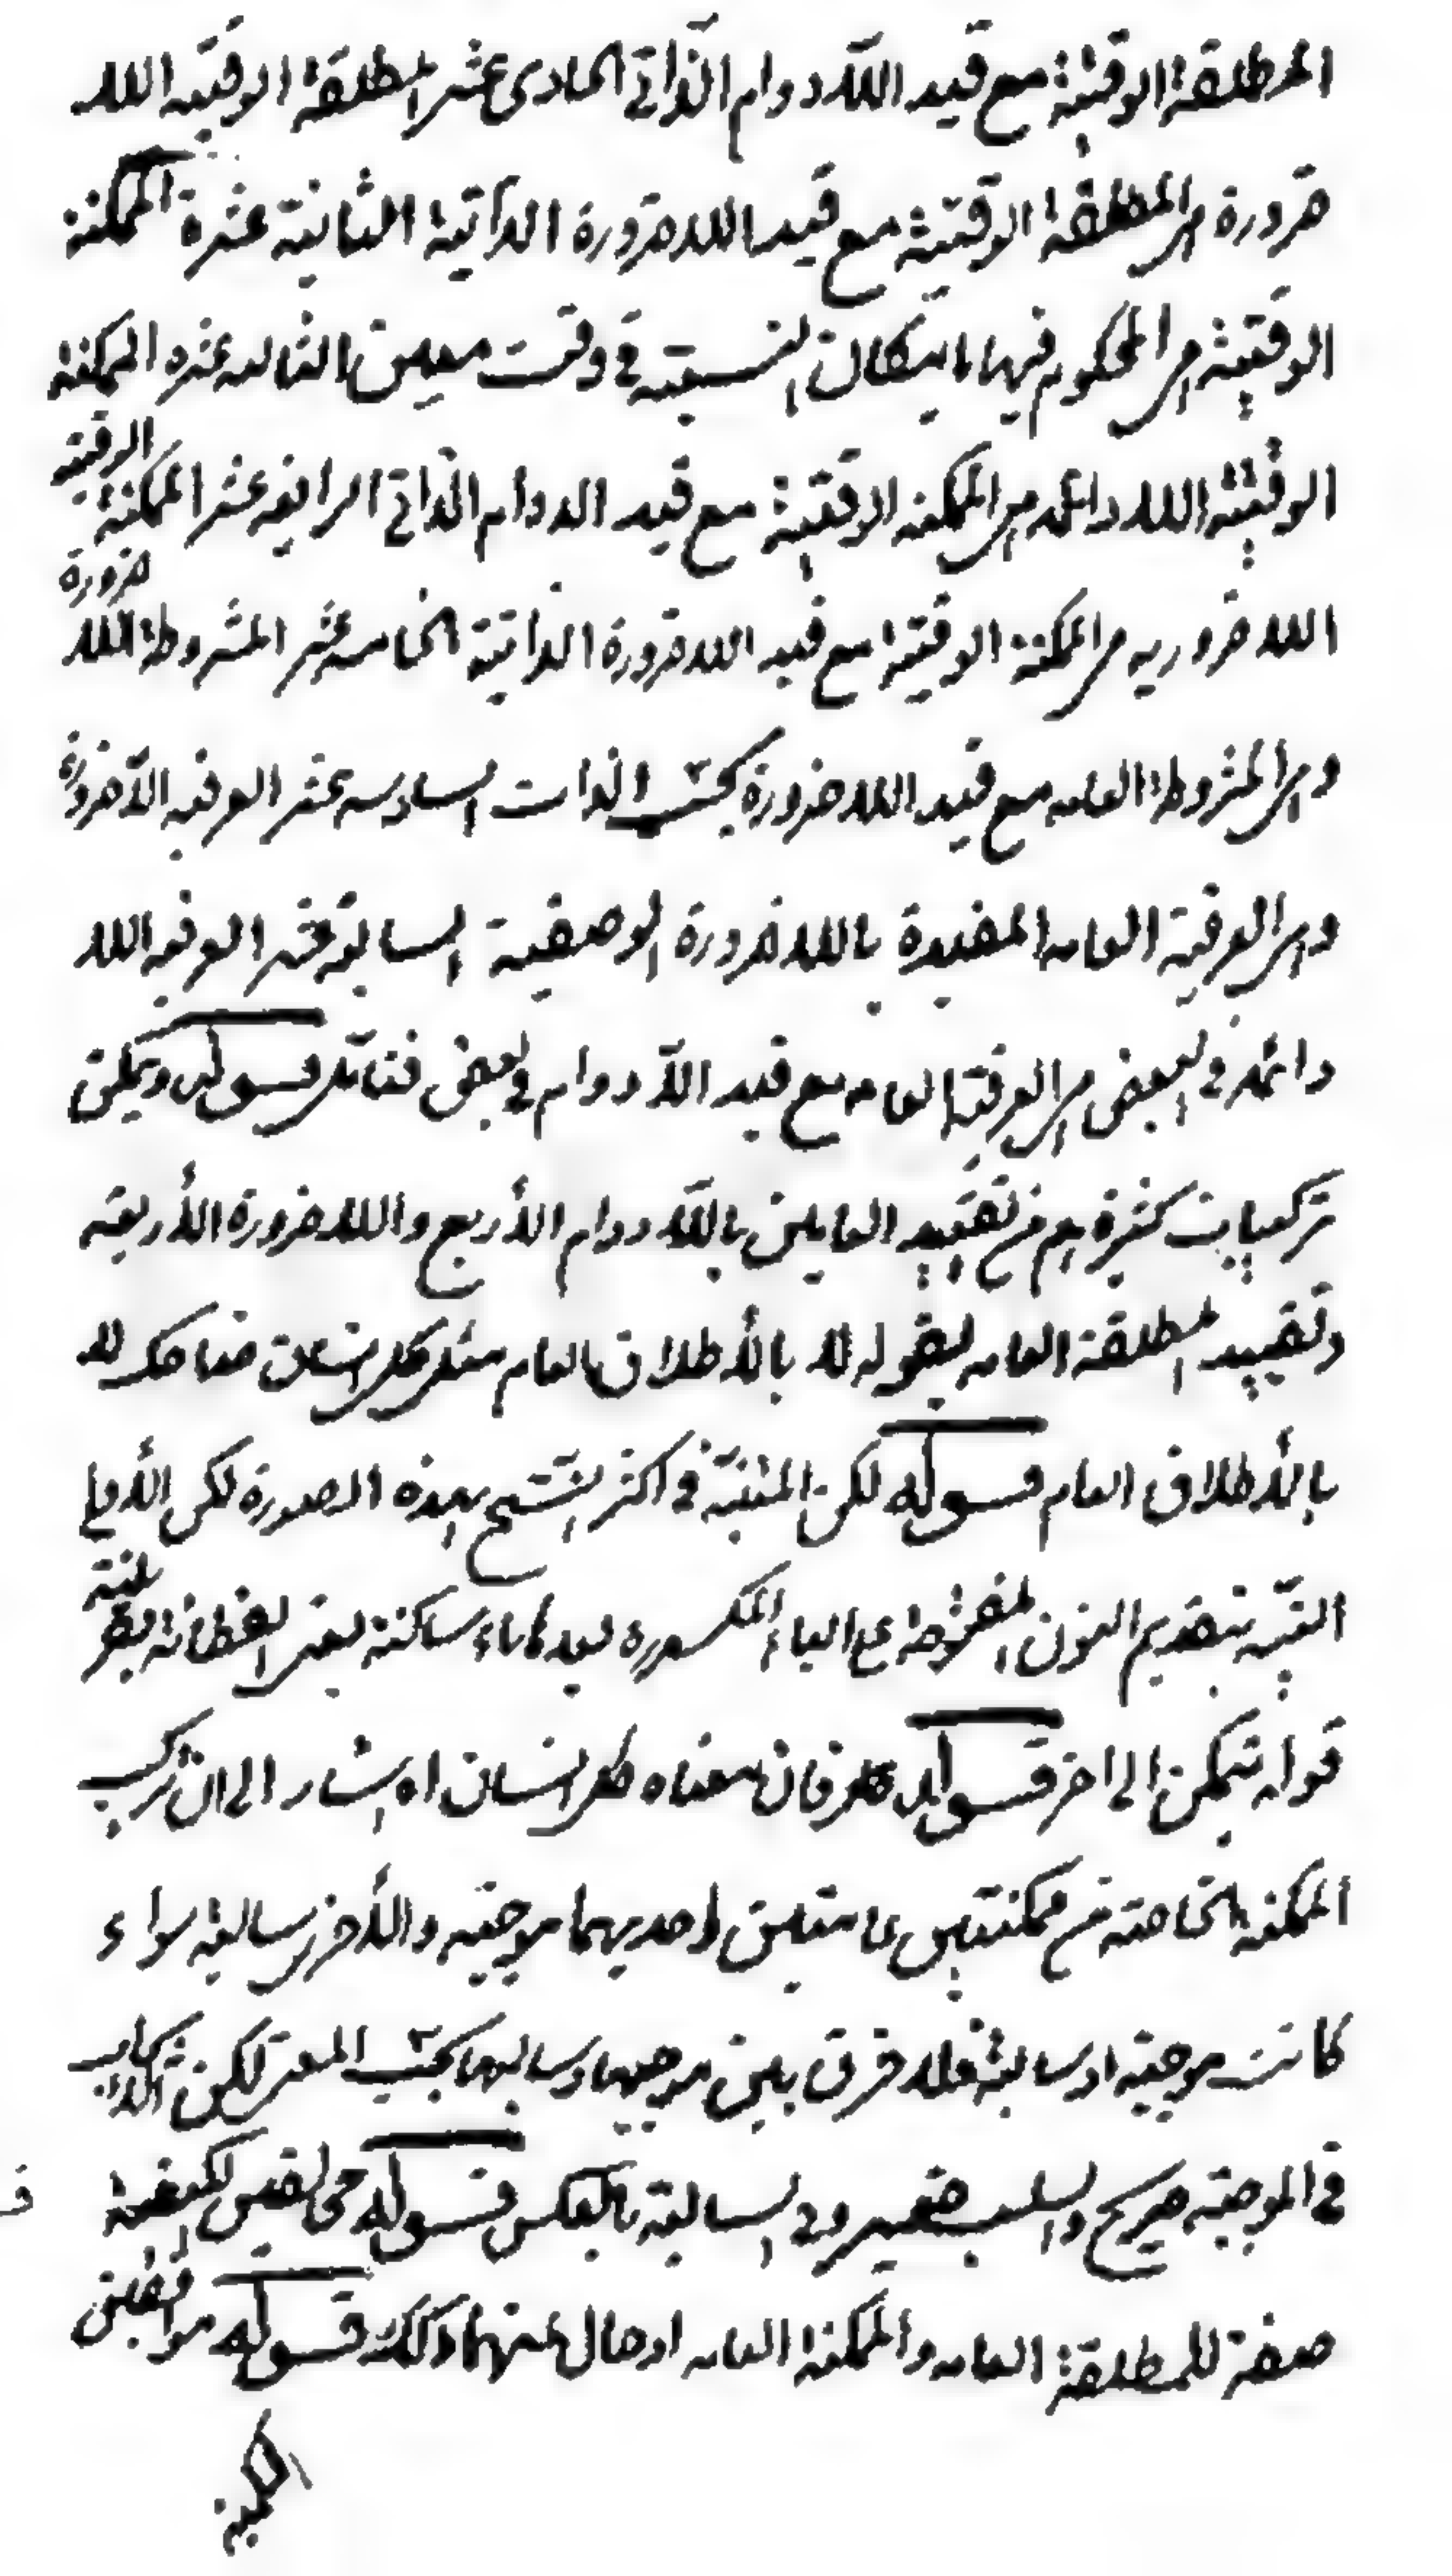 المطلقة الوقتية مع قيد اللادوام الذاتى الحادى عشر المطلقة الوقتيه اللا
ضرورة هى المطلقة الوقتية مع قيد اللاضرورة الذاتية الثانية عشرة الممكنة
الوقتية هى المحكوم فيها بامكان النسبته فى وقت معين الثالثه عشره الممكنة
الوقتية اللادائمه هى الممكنه الوقتية مع قيد الدوام الذاتى الرابعه عشر الممكنة الوقتية
اللاضروريه هى الممكنة الوقتية مع قيد اللاضرورة الذاتية الخامسه عشر المشروطة اللاضرورة
وهى المشروطة العامه مع قيد اللاضرورة بحسب الذات السادسه عشر العرفيه اللاضرورة
وهى العرفية العامه المقيدة باللاضرورة الوصفية السابعة عشر العرفيه اللا
دائمه فى البعض هى العرفية العامه مع قيد اللادوام فى بعض فتأمل قوله ويمكن
تركيبات كثيرة من تقييد العامين باللادوام الأربع واللاضرورة الأربعة
وتقييد المطلقة العامه بقوله لا بالأطلاق العام مثل كل انسان ضاحك لا
بالأطلاق العام قوله لكن المثبتة فى اكثر النسخ بهذه الصورة لكن
بتقديم النون المفتوحة على الباء المكسوره بعدها ياء ساكنة
قوله تمكن الى اخر قوله فان معناه كل انسان اه اشار الى ان تركيب
الممكنه الخاصة من ممكنتين عامتين احديهما موجبه والأخرى سالبة سواء
كانت موجبة او سالبة فلا فرق بين موجبها وسالبها بحسب المعنى لكن الايجاب
فى الموجبه صريح والسلب ضمنى وفى السالبة بالعكس قوله مخالفتى الكيفية
صفة للمطلقة العامه والممكنة العامه او حال عنهما وكذلك قوله موافقتى
الكمية